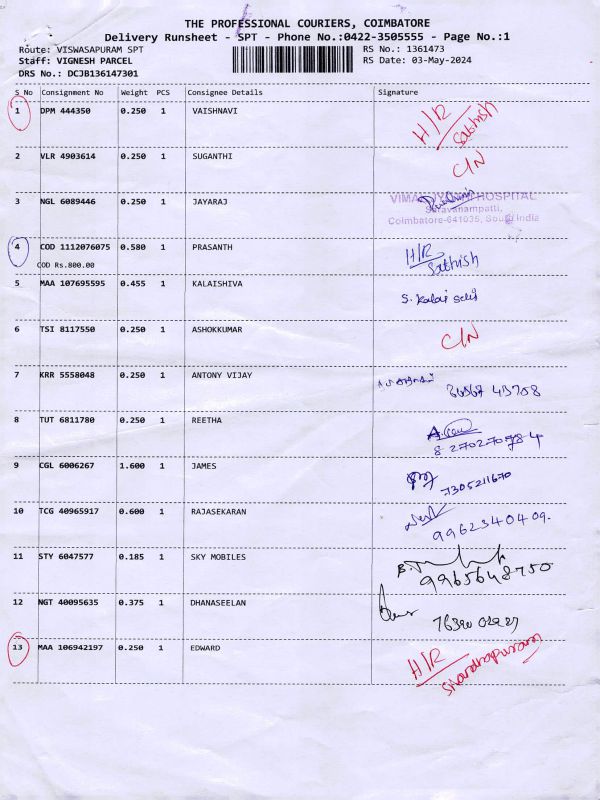 THE PROFESSIONAL COURIERS, COIMBATORE
Delivery Runsheet - SPT - Phone No.:0422-3505555 - Page No.:1
Route: VISWASAPURAM SPT RS No.: 1361473
Staff: VIGNESH PARCEL RS Date: 03-May-2024
DRS No.: DCJB136147301
S No Consignment No Weight PCS Consignee Details Signature
1 DPM 444350 0.250 1 VAISHNAVI H/R
Sathish
2 VLR 4903614 0.250 1 SUGANTHI C/N
3 NGL 6089446 0.250 1 JAYARAJ HOSPITAL
Saravanampatti,
Coimbatore-641035, South India
4 COD 1112076075 0.580 1 PRASANTH H/R
COD Rs.800.00 Sathish
5 MAA 107695595 0.455 1 KALAISHIVA S. Kalai Selvi
6 TSI 8117550 0.250 1 ASHOKKUMAR C/N
7 KRR 5558048 0.250 1 ANTONY VIJAY
8 TUT 6811780 0.250 1 REETHA
8270270784
9 CGL 6006267 1.600 1 JAMES
7305211670
10 TCG 40965917 0.600 1 RAJASEKARAN
9962340409.
11 STY 6047577 0.185 1 SKY MOBILES
9965648750
12 NGT 40095635 0.375 1 DHANASEELAN
13 MAA 106942197 0.250 1 EDWARD H/R